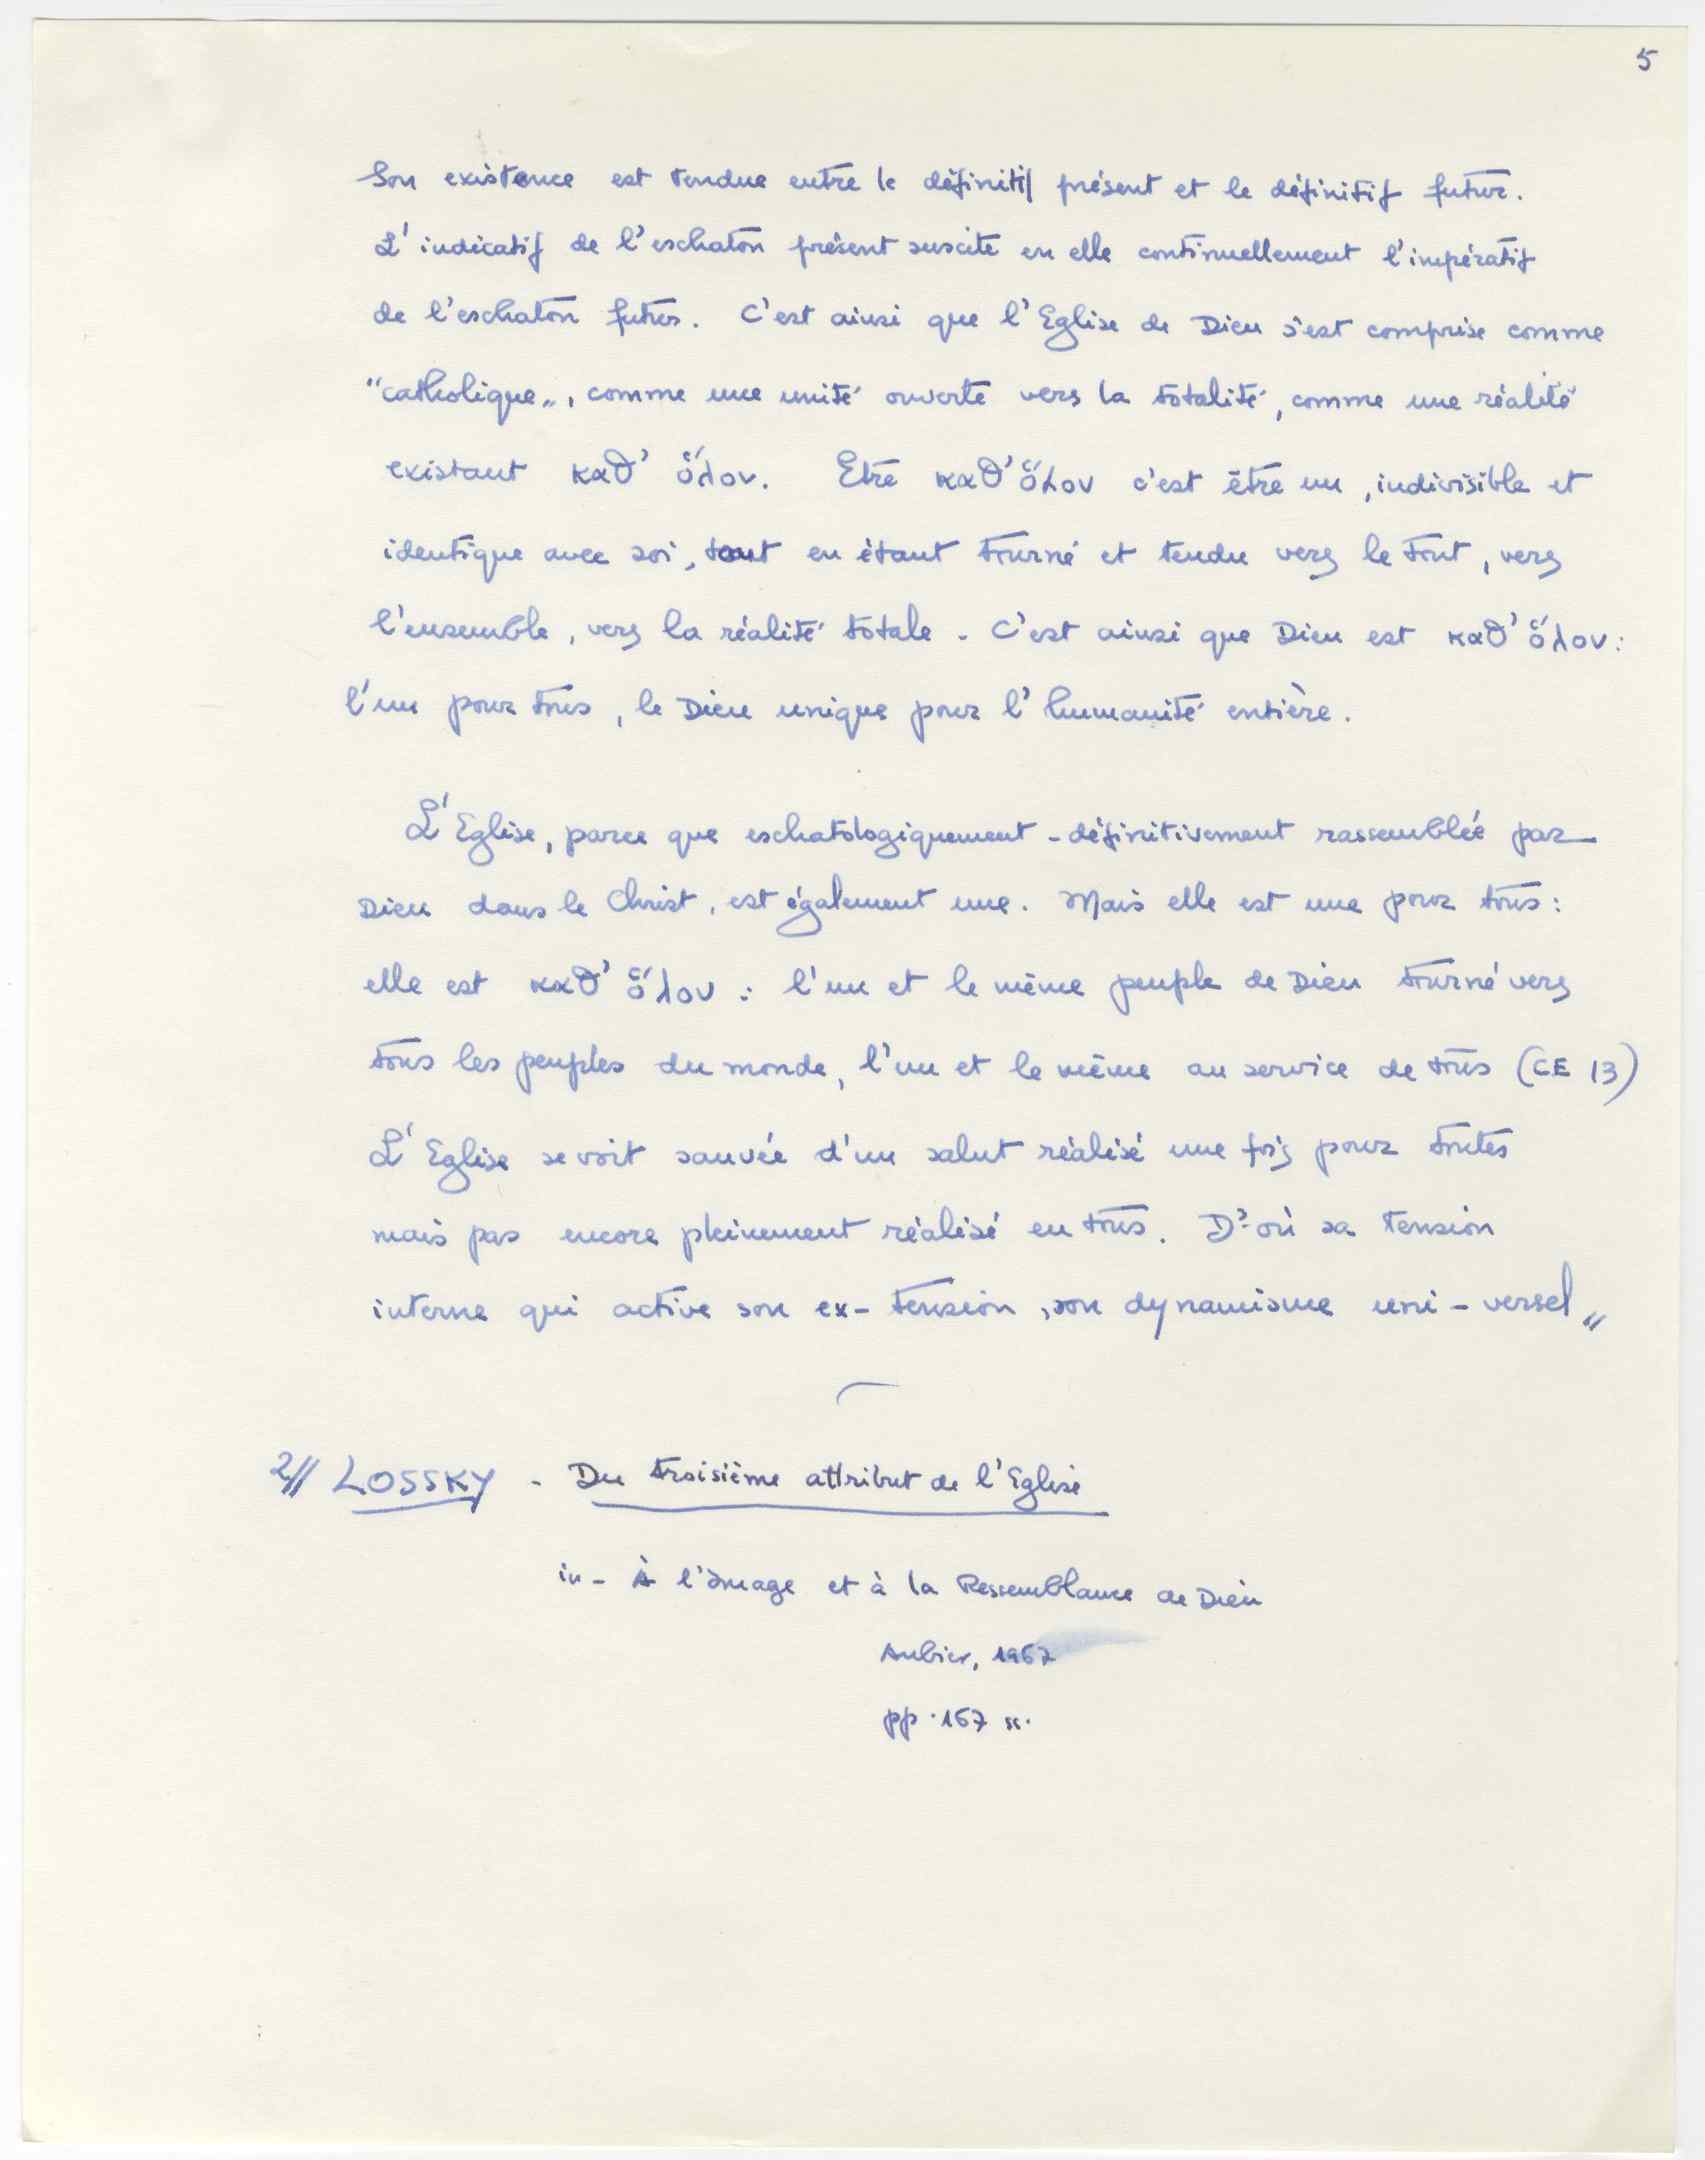 5
Son existence est tendue entre le définitif présent et le définitif futur.
L'indicatif de l'eschaton présent suscite en elle continuellement l'impératif
de l'eschaton futur. C'est ainsi que l'Eglise de Dieu s'est comprise comme
"catholique", comme une unité ouverte vers la totalité, comme une réalité
existant καθ' ὅλον. Etre καθ' ὅλον c'est être un, indivisible et
identique avec soi, tout en étant tourné et tendu vers le tout, vers
l'ensemble, vers la réalité totale. C'est ainsi que Dieu est καθ' ὅλον:
l'un pour tous, le Dieu unique pour l'humanité entière.
L'Eglise, parce que eschatologiquement - définitivement rassemblée par
Dieu dans le Christ, est également une. Mais elle est une pour tous:
elle est καθ' ὅλον : l'un et le même peuple de Dieu tourné vers
tous les peuples du monde, l'un et le même au service de tous (CE 13)
L'Eglise se voit sauvée d'un salut réalisé une fois pour toutes
mais pas encore pleinement réalisé en tous. D'où sa tension
interne qui active son ex-tension, son dynamisme uni-versel"
2// LOSSKY - Du troisième attribut de l'Eglise
in - À l'Image et à la Ressemblance de Dieu
Aubier, 1967
pp. 167 ss.